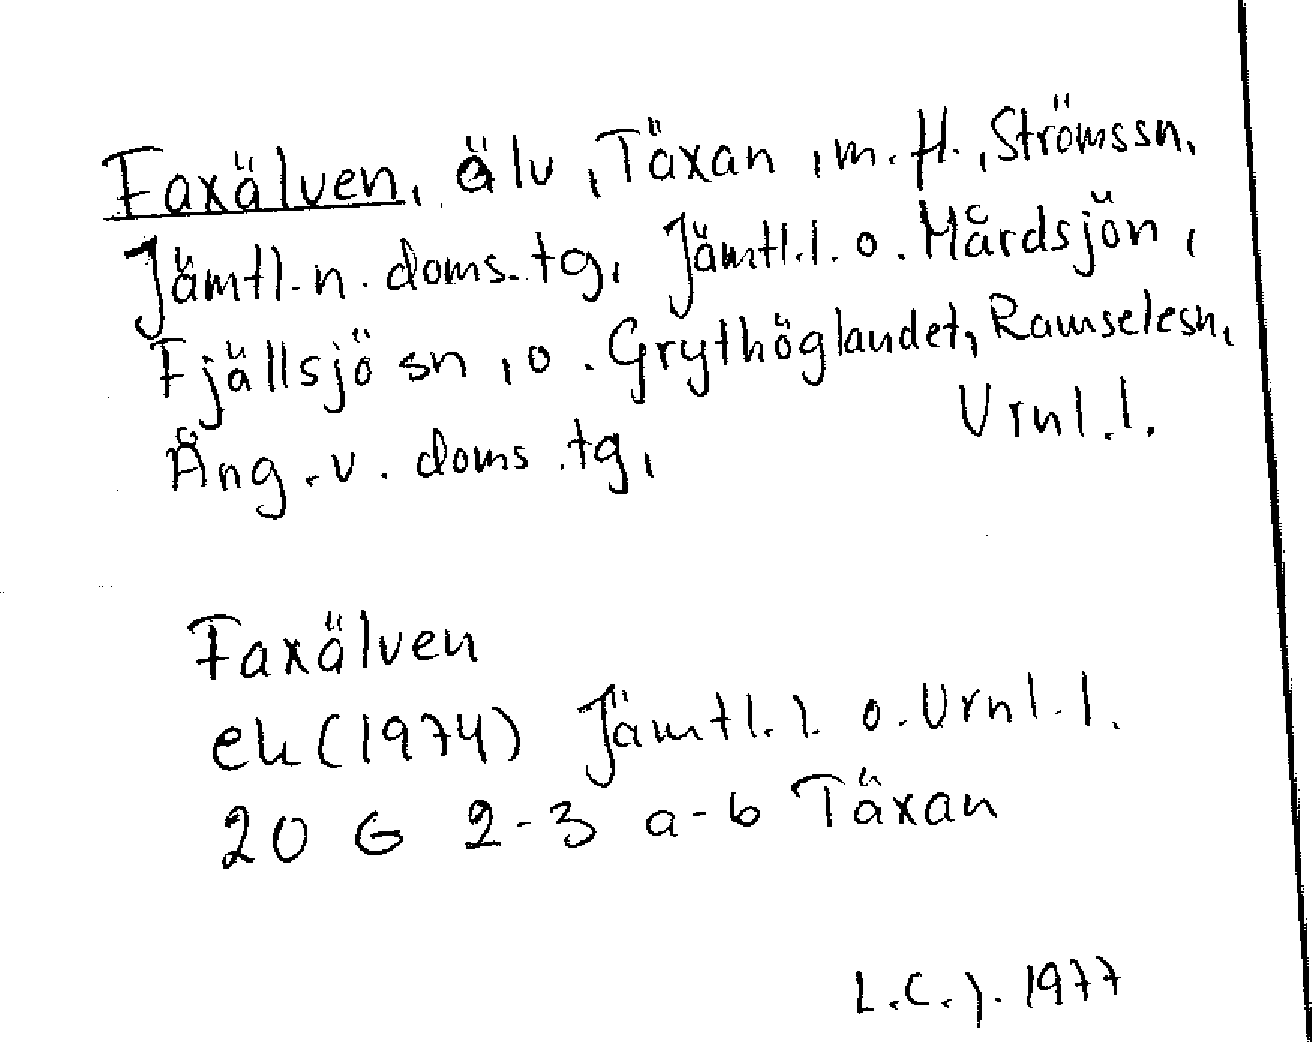 Faxälven, älv, Täxan, m. fl., Ströms sn,
Jämtl. n. doms. tg, Jämtl. l. o. Mårdsjön,
Fjällsjö sn, o. Grythöglandet, Ramsele sn,
Vrnl. l.
Ång. v. doms. tg,
Faxälven
ek (1974) Jämtl. l. o. Vrnl. l.
20 G 2-3 a-b Täxan
L.C.J. 1977